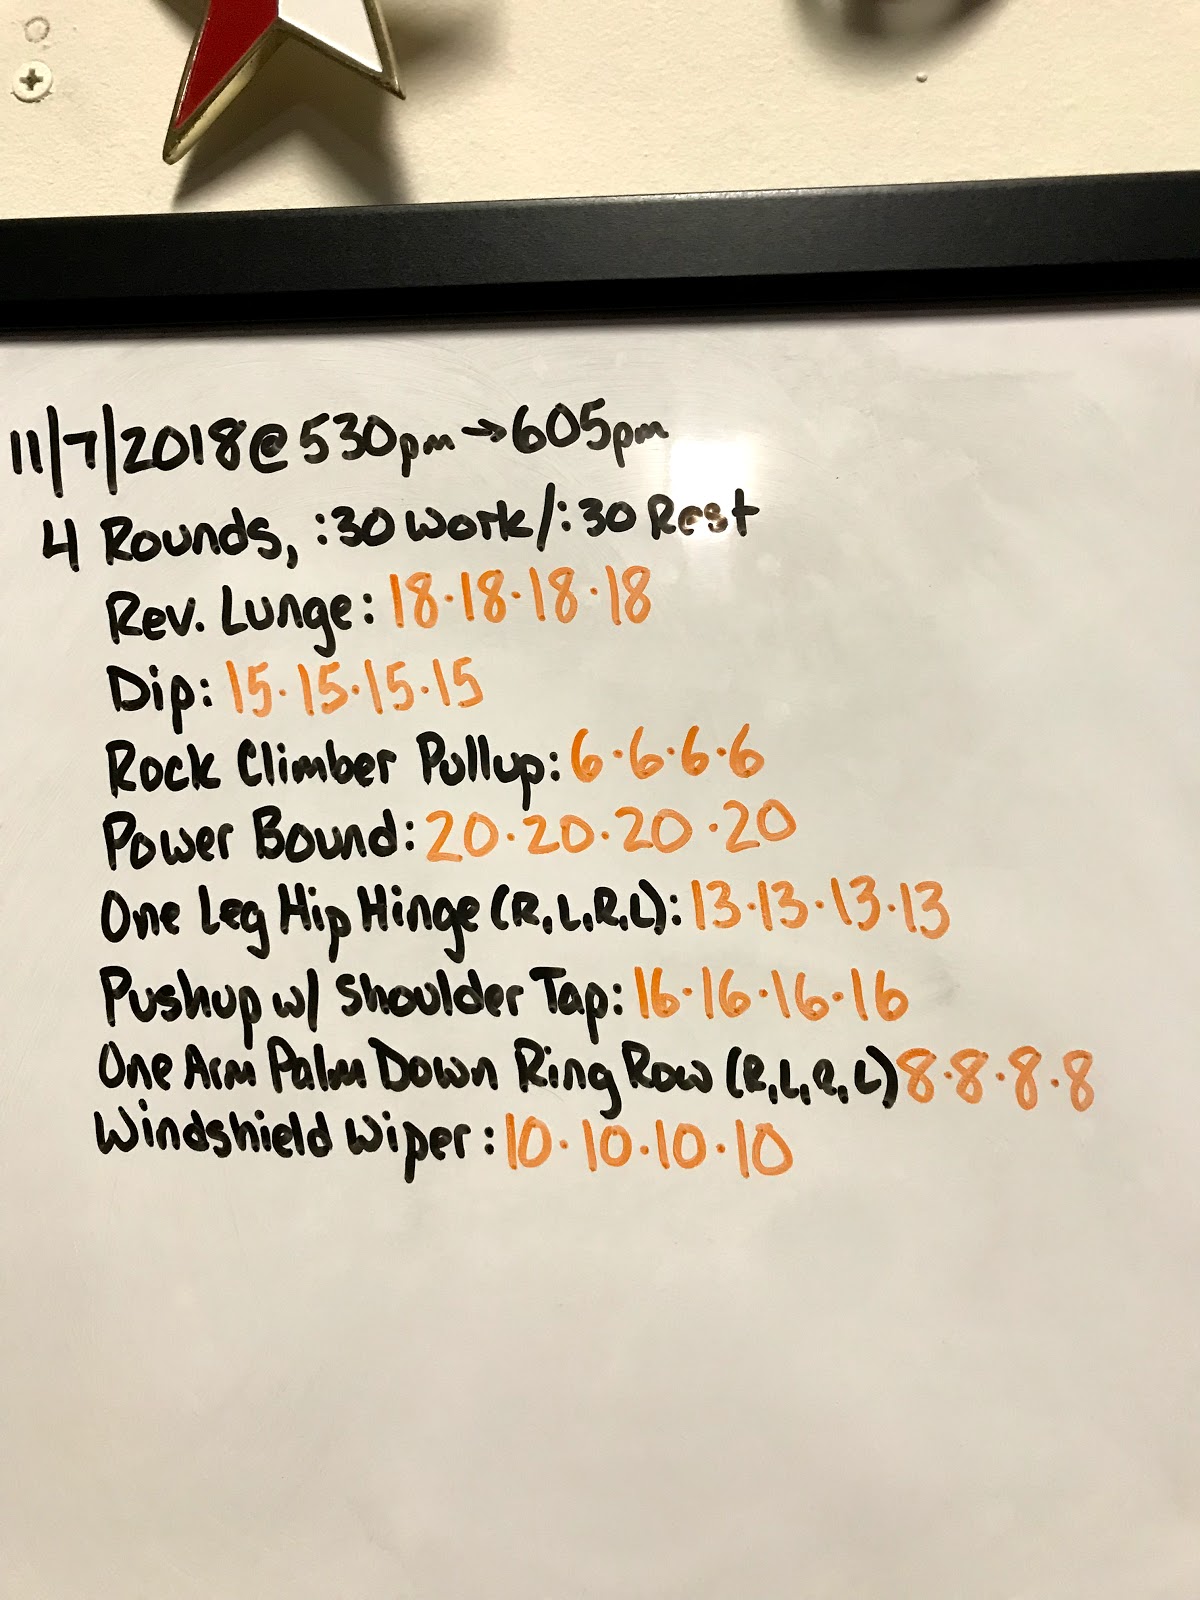 11/7/2018@530pm→605pm
4 Rounds, :30 Work/:30 Rest
Rev. Lunge: 18·18·18·18
Dip: 15·15·15·15
Rock Climber Pullup: 6·6·6·6
Power Bound: 20·20·20·20
One Leg Hip Hinge (R,L,R,L): 13·13·13·13
Pushup w/ Shoulder Tap: 16·16·16·16
One Arm Palm Down Ring Row (R,L,R,L) 8·8·8·8
Windshield Wiper: 10·10·10·10